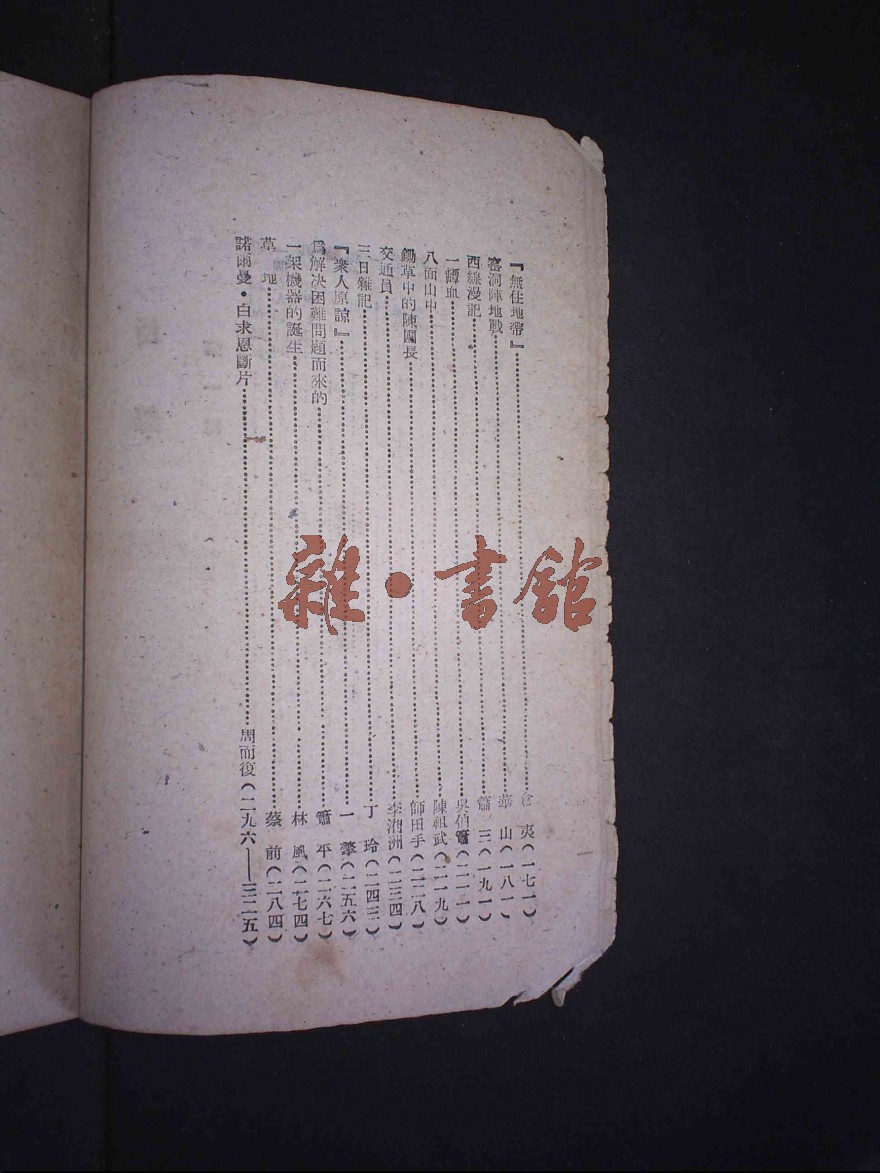 『無住地帶』……倉夷(一七一)
窰洞陣地戰……華山(一八一)
西線漫記……蕭三(一九一)
一罈血……吳伯簫(二一一)
八面山中……陳祖武(二一九)
鋤草中的陳團長……師田手(二二八)
交通員……李洲(二三四)
三日雜記……丁玲(二四三)
『衆人原諒』……一擎(二五六)
爲解决困難問題而來的……蕭平(二六七)
一架機器的誕生……林風(二七四)
草地……蔡前(二八四)
諾爾曼·白求恩斷片……周而復(二九六——三二五)
雜·書舘